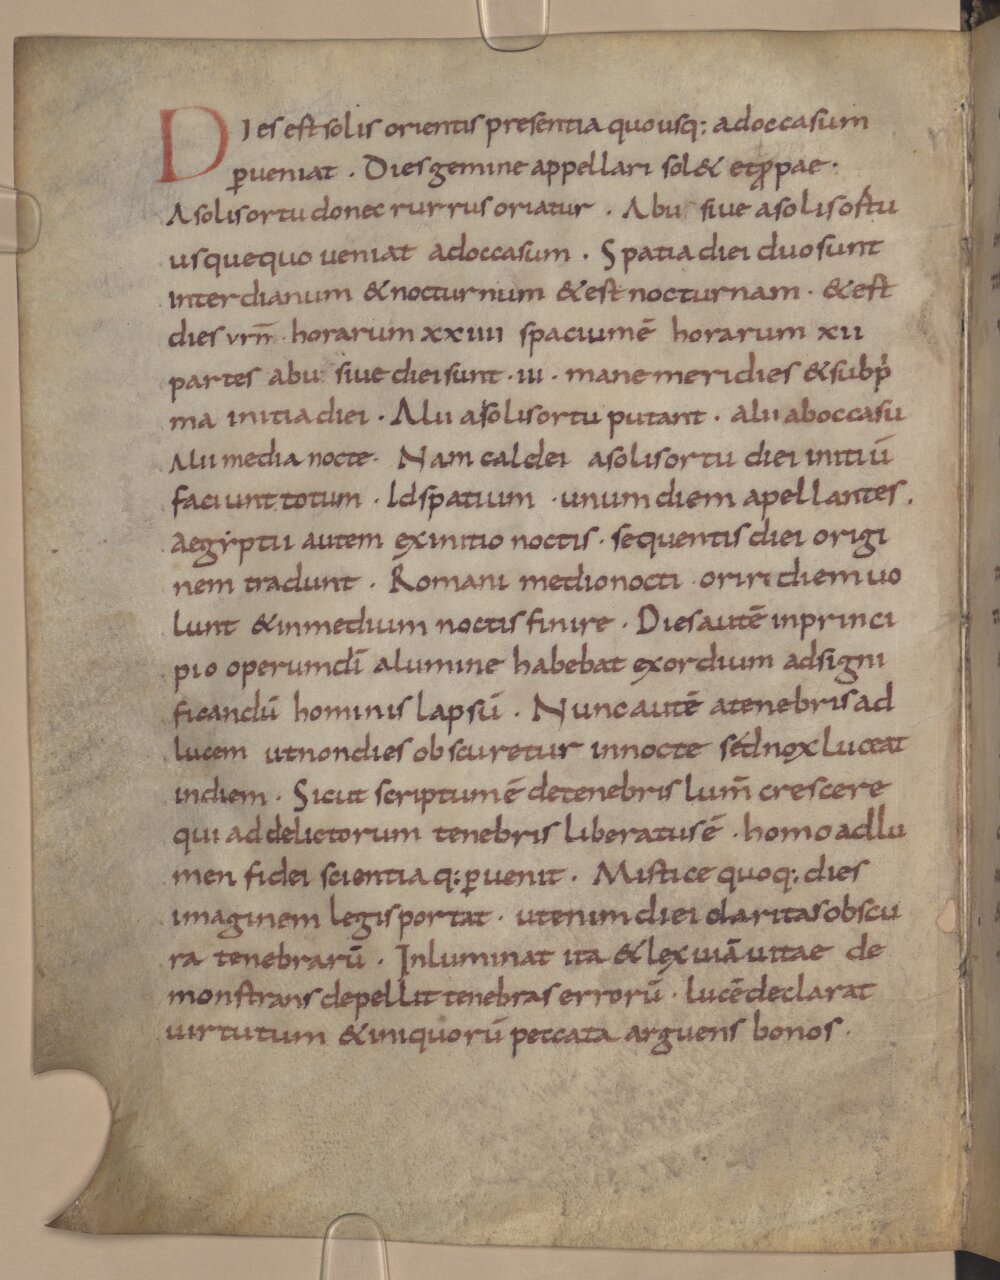 Dies est solis orientis presentia quousq; adoccasum
ꝑueniat . Dies gemine appellari sol& et ꝓpae .
A solis ortu donec rurrus oriatur . Abu siue asolis ostu
usquequo ueniat adoccasum . Spatia diei duo sunt
interdianum &nocturnum &est nocturnam . &est
dies vrn̄ horarum xxiiii spaciumē horarum xii
partes abu siue diei sunt . iii . mane meridies &subp̄
ma initia diei . Alii asolis ortu putant . alii aboccasu
Alii media nocte . Nam caldei asolis ortu diei initiū
faciunt totum . Id spatium . unum diem apellantes .
aegyptii autem exinitio noctis . sequentis diei origi
nem tradunt . Romani medio nocti oriri diem uo
lunt &inmedium noctis finire . Dies autē inprinci
pio operum dī alumine habebat exordium adsigni
ficandū hominis lapsū . Nunc autē atenebris ad
lucem ut non dies obscuretur innocte sed nox luceat
indiem . Sicut scriptum ē detenebris lum̄ crescere
qui ad delictorum tenebris liberatus ē . homo adlu
men fidei scientiaq; ꝑuenit . Mistice quoq; dies
imaginem legis portat . ut enim diei claritas obscu
ra tenebrarū . Inluminat ita &lex uiā uitae de
monstrans depellit tenebras errorū . lucē declarat
uirtutum &iniquorū peccata arguens bonos .